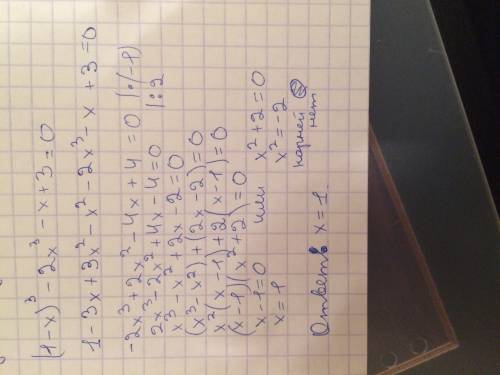 (1-x)³ - 2x³ - x + 3 = 0
1 - 3x + 3x² - x² - 2x³ - x + 3 = 0
-2x³ + 2x² - 4x + 4 = 0 |:(-1)
2x³ - 2x² + 4x - 4 = 0 |:2
x³ - x² + 2x - 2 = 0
(x³ - x²) + (2x - 2) = 0
x²(x - 1) + 2(x - 1) = 0
(x - 1)(x² + 2) = 0
x - 1 = 0 или x² + 2 = 0
x = 1 x² = -2
корней
нет
Ответ: x = 1.